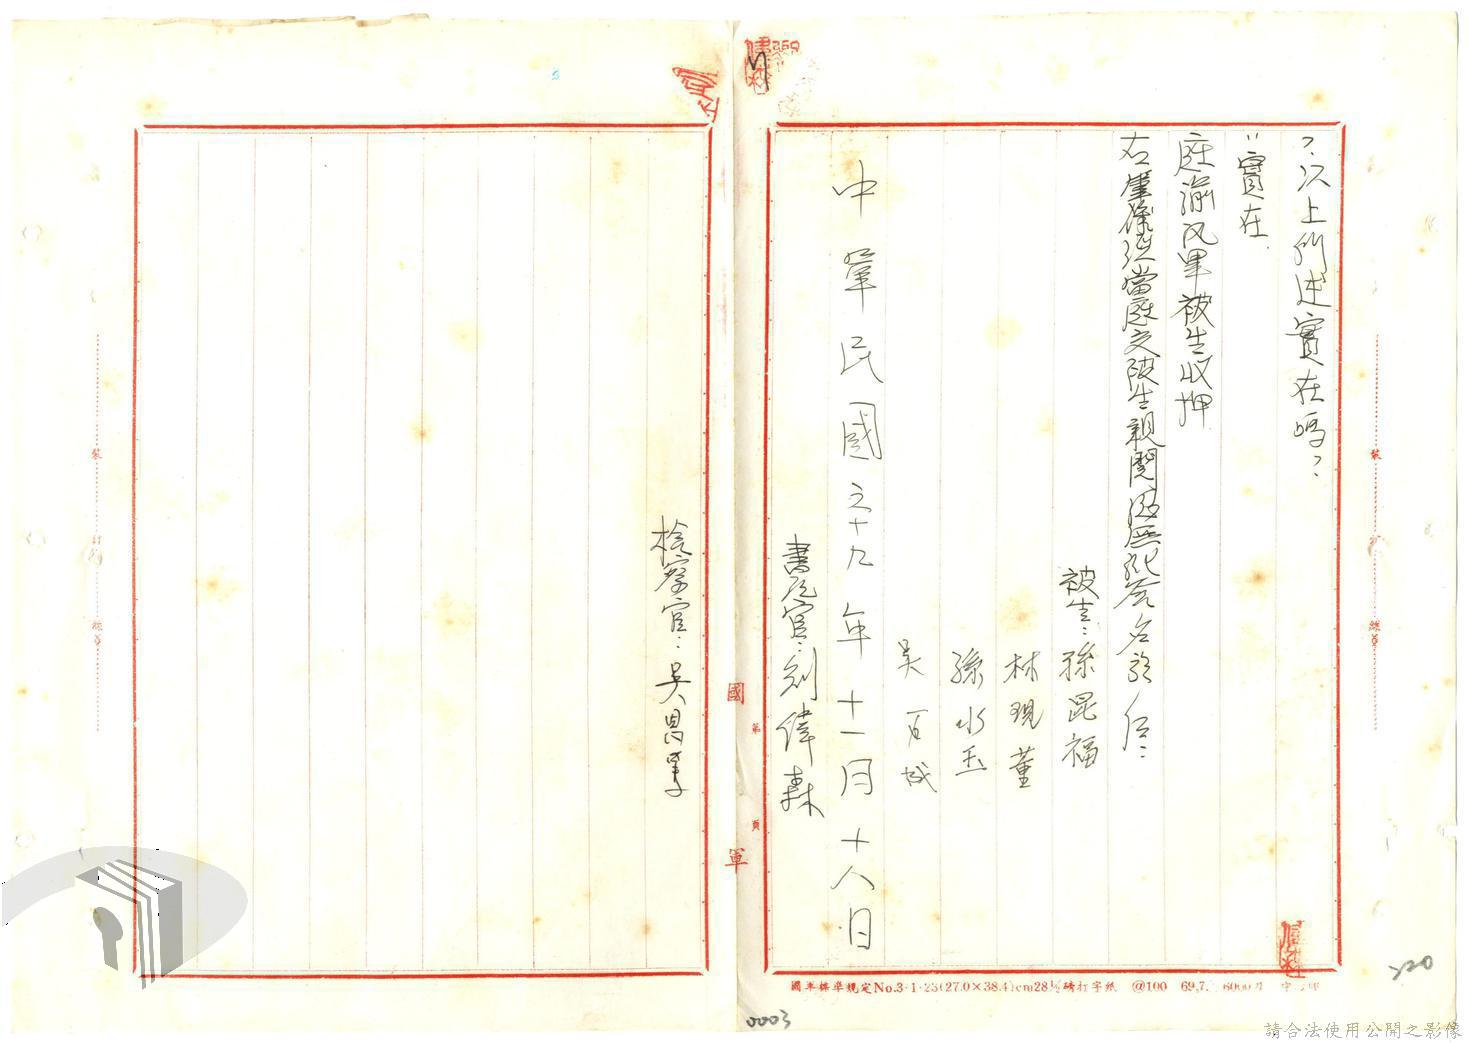 ?以上所述實在嗎?
"實在.
庭諭凡畢被告收押
右筆錄經當庭交被告親閱後無訛簽名於后:
被告:孫昆福
林現董
孫水玉
吳百城
中華民國六十九年十一月十八日
書記官:劉偉森
檢察官:吳恩寧
裝
訂
線
國
第
頁
軍
裝
線
國軍標準規定No.3-1-23(27.0×38.4)cm28½磅打字紙 @100 69.7. 6000刀
0003
220
請合法使用公開之影像